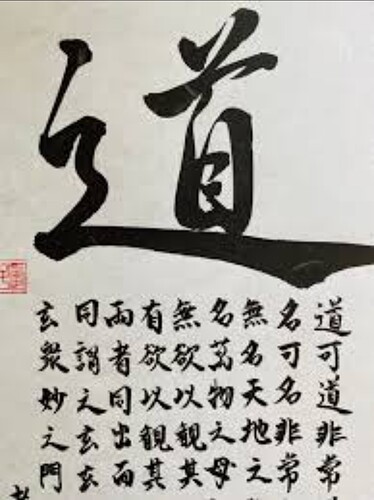 道
道可道非常
名可名非常
無名天地之
名萬物之母
無欲以觀其
有欲以觀其
兩者同出而
同謂之玄玄
玄衆妙之門